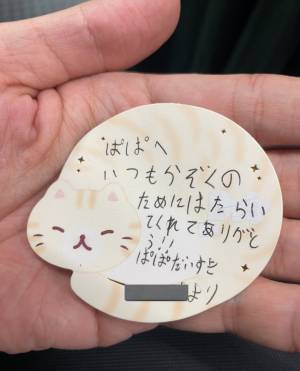 ぱぱへ
いつもかぞくの
ためにはたらい
てくれてありがと
う!!
ぱぱだいすき
より